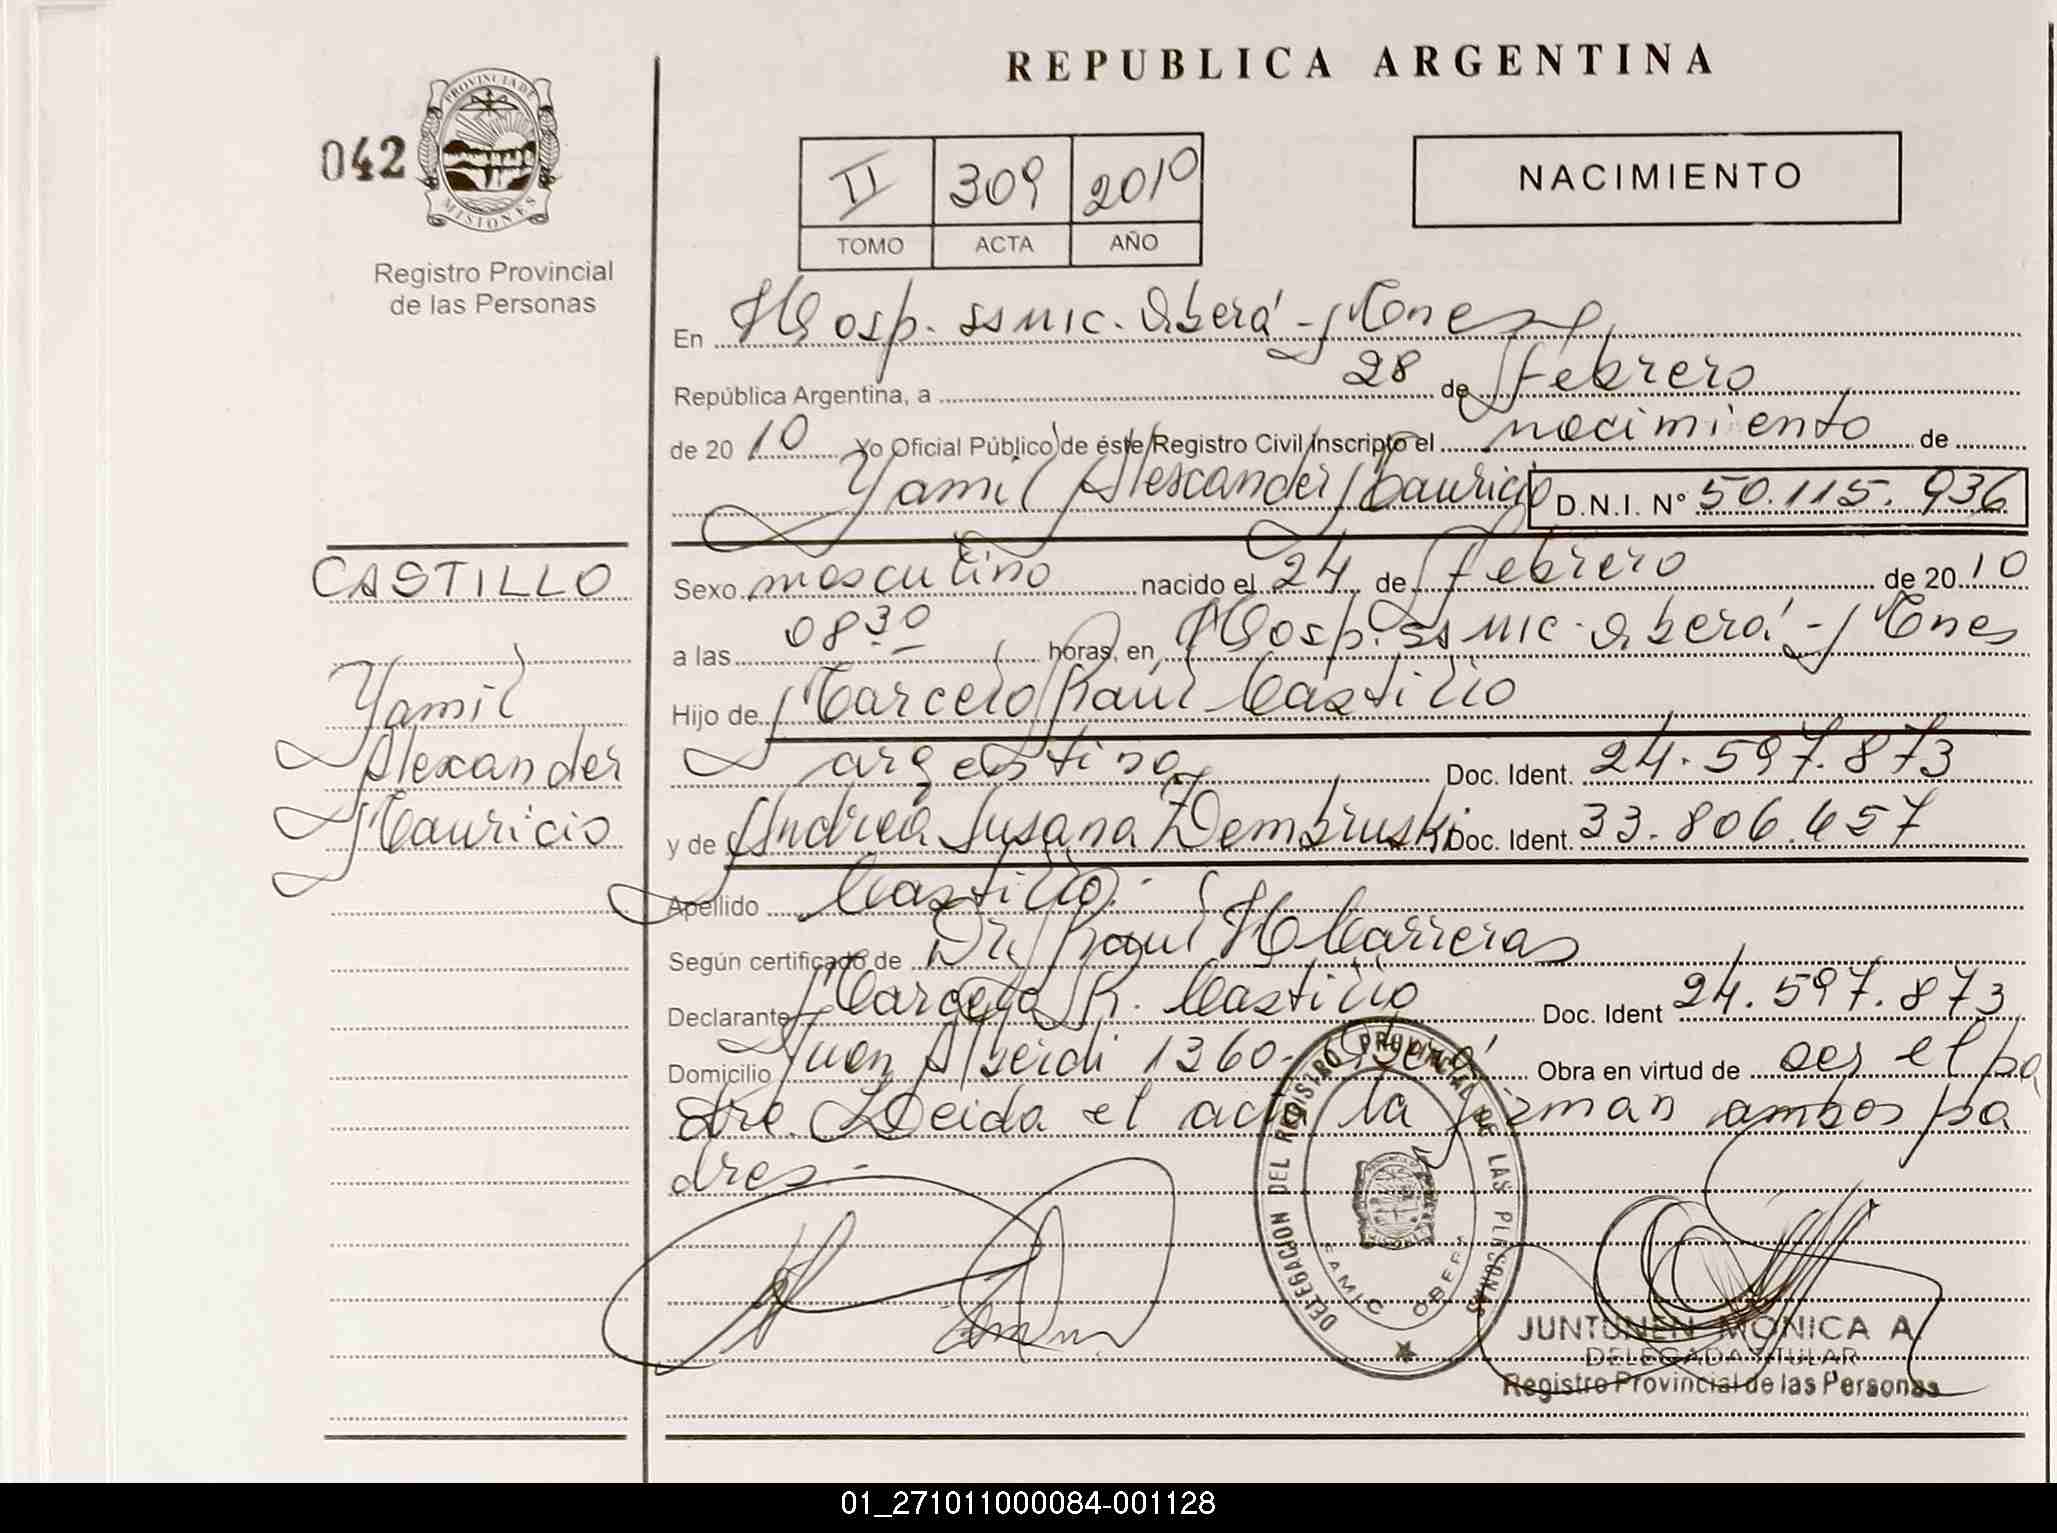 REPUBLICA ARGENTINA
042
PROVINCIA DE
MISIONES
Registro Provincial
de las Personas
II 309 2010
TOMO ACTA AÑO
NACIMIENTO
En Hosp. SSMIC. Oberá - Mnes
República Argentina, a 28 de febrero
de 2010 Yo Oficial Público de éste Registro Civil Inscripto el nacimiento de
Yamil Alexander Mauricio D.N.I. N° 50.115.936
CASTILLO
Yamil
Alexander
Mauricio
Sexo masculino nacido el 24 de febrero de 2010
a las 08 30 horas, en Hosp. SSMIC. Oberá - Mnes
Hijo de Marcelo Raúl Castillo
argentino Doc. Ident. 24.597.873
y de Andrea Susana Dembruski Doc. Ident. 33.806.657
Apellido Castillo.-
Según certificado de Dr. Raúl H Carreras
Declarante Marcelo R. Castillo Doc. Ident 24.597.873
Domicilio Juan Alberdi 1360- Oberá Obra en virtud de ser el pa
dre. Leida el acta la firman ambos pa
dres.-
DELEGACION DEL REGISTRO PROVINCIAL DE LAS PERSONAS
SAMIC OBERA
JUNTUNEN MONICA A.
DELEGADA TITULAR
Registro Provincial de las Personas
01_271011000084-001128